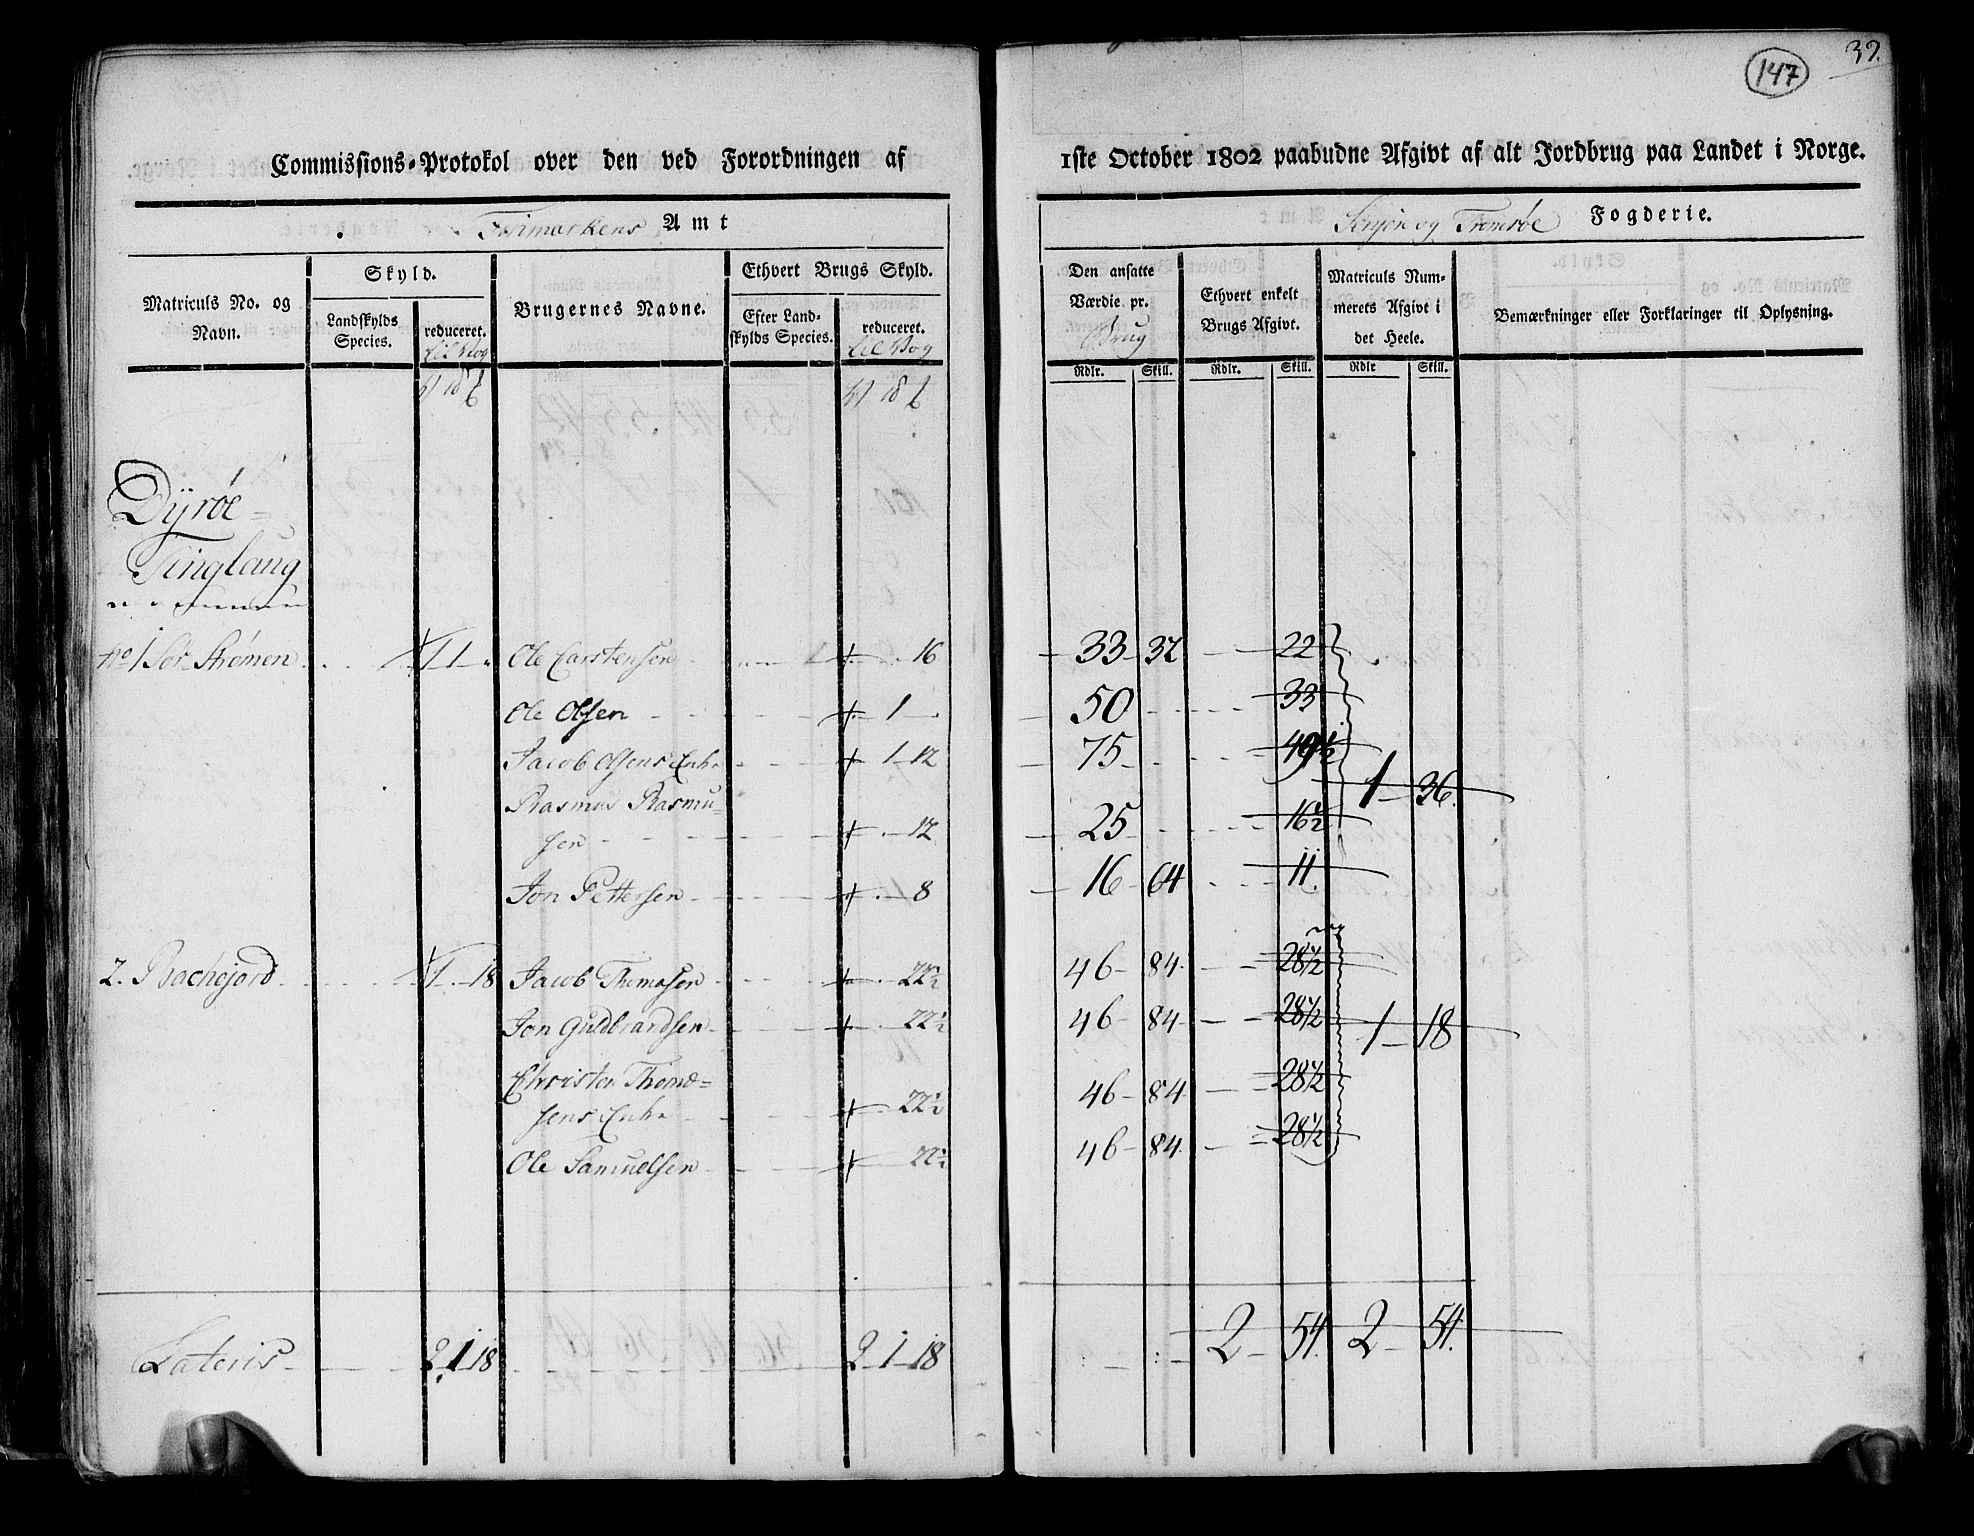 147
39.
Commissions-Protokol over den ved Forordningen af 1ste October 1802 paabudne Afgivt af alt Jordbrug paa Landet i Norge.
Finmarkens Amt
Senjen og Tromsøe Fogderie.
Matriculs No. og Navn.
Skyld.
Landskylds Species.
reduceret. til Vog
Brugernes Navne.
Ethvert Brugs Skyld.
Efter Landskylds Species.
reduceret. til Vog
Den ansatte Værdie pr. Brug
Ethvert enkelt Brugs Afgivt.
Matriculs Nummerets Afgivt i det Heele.
Bemærkninger eller Forklaringer til Oplysning.
Rdlr. Skill. Rdlr. Skill. Rdlr Skill.
Dyrøe-
Tinglaug
No 1 Sør Strømen 1 1 Ole Carstensen 16 33 32 22
Ole Olsen 1 50 33
Jacob Olsens Enke 1 12 75 49½
1 36.
Rasmus Rasmu-
sen 12 25 16½
Jon Pettersen 8 16 64 11.
2. Rachejord 1 18 Jacob Thomasen 22½ 46 84. 28½
Jon Guldbrandsen 22½ 46 84 28½ 1 18
Christen Thoma-
sens Enke 22½ 46 84 28½
Ole Samuelsen 22½ 46 84. 28½
Lateris 2 1 18 2 1 18 2 54. 2 54.